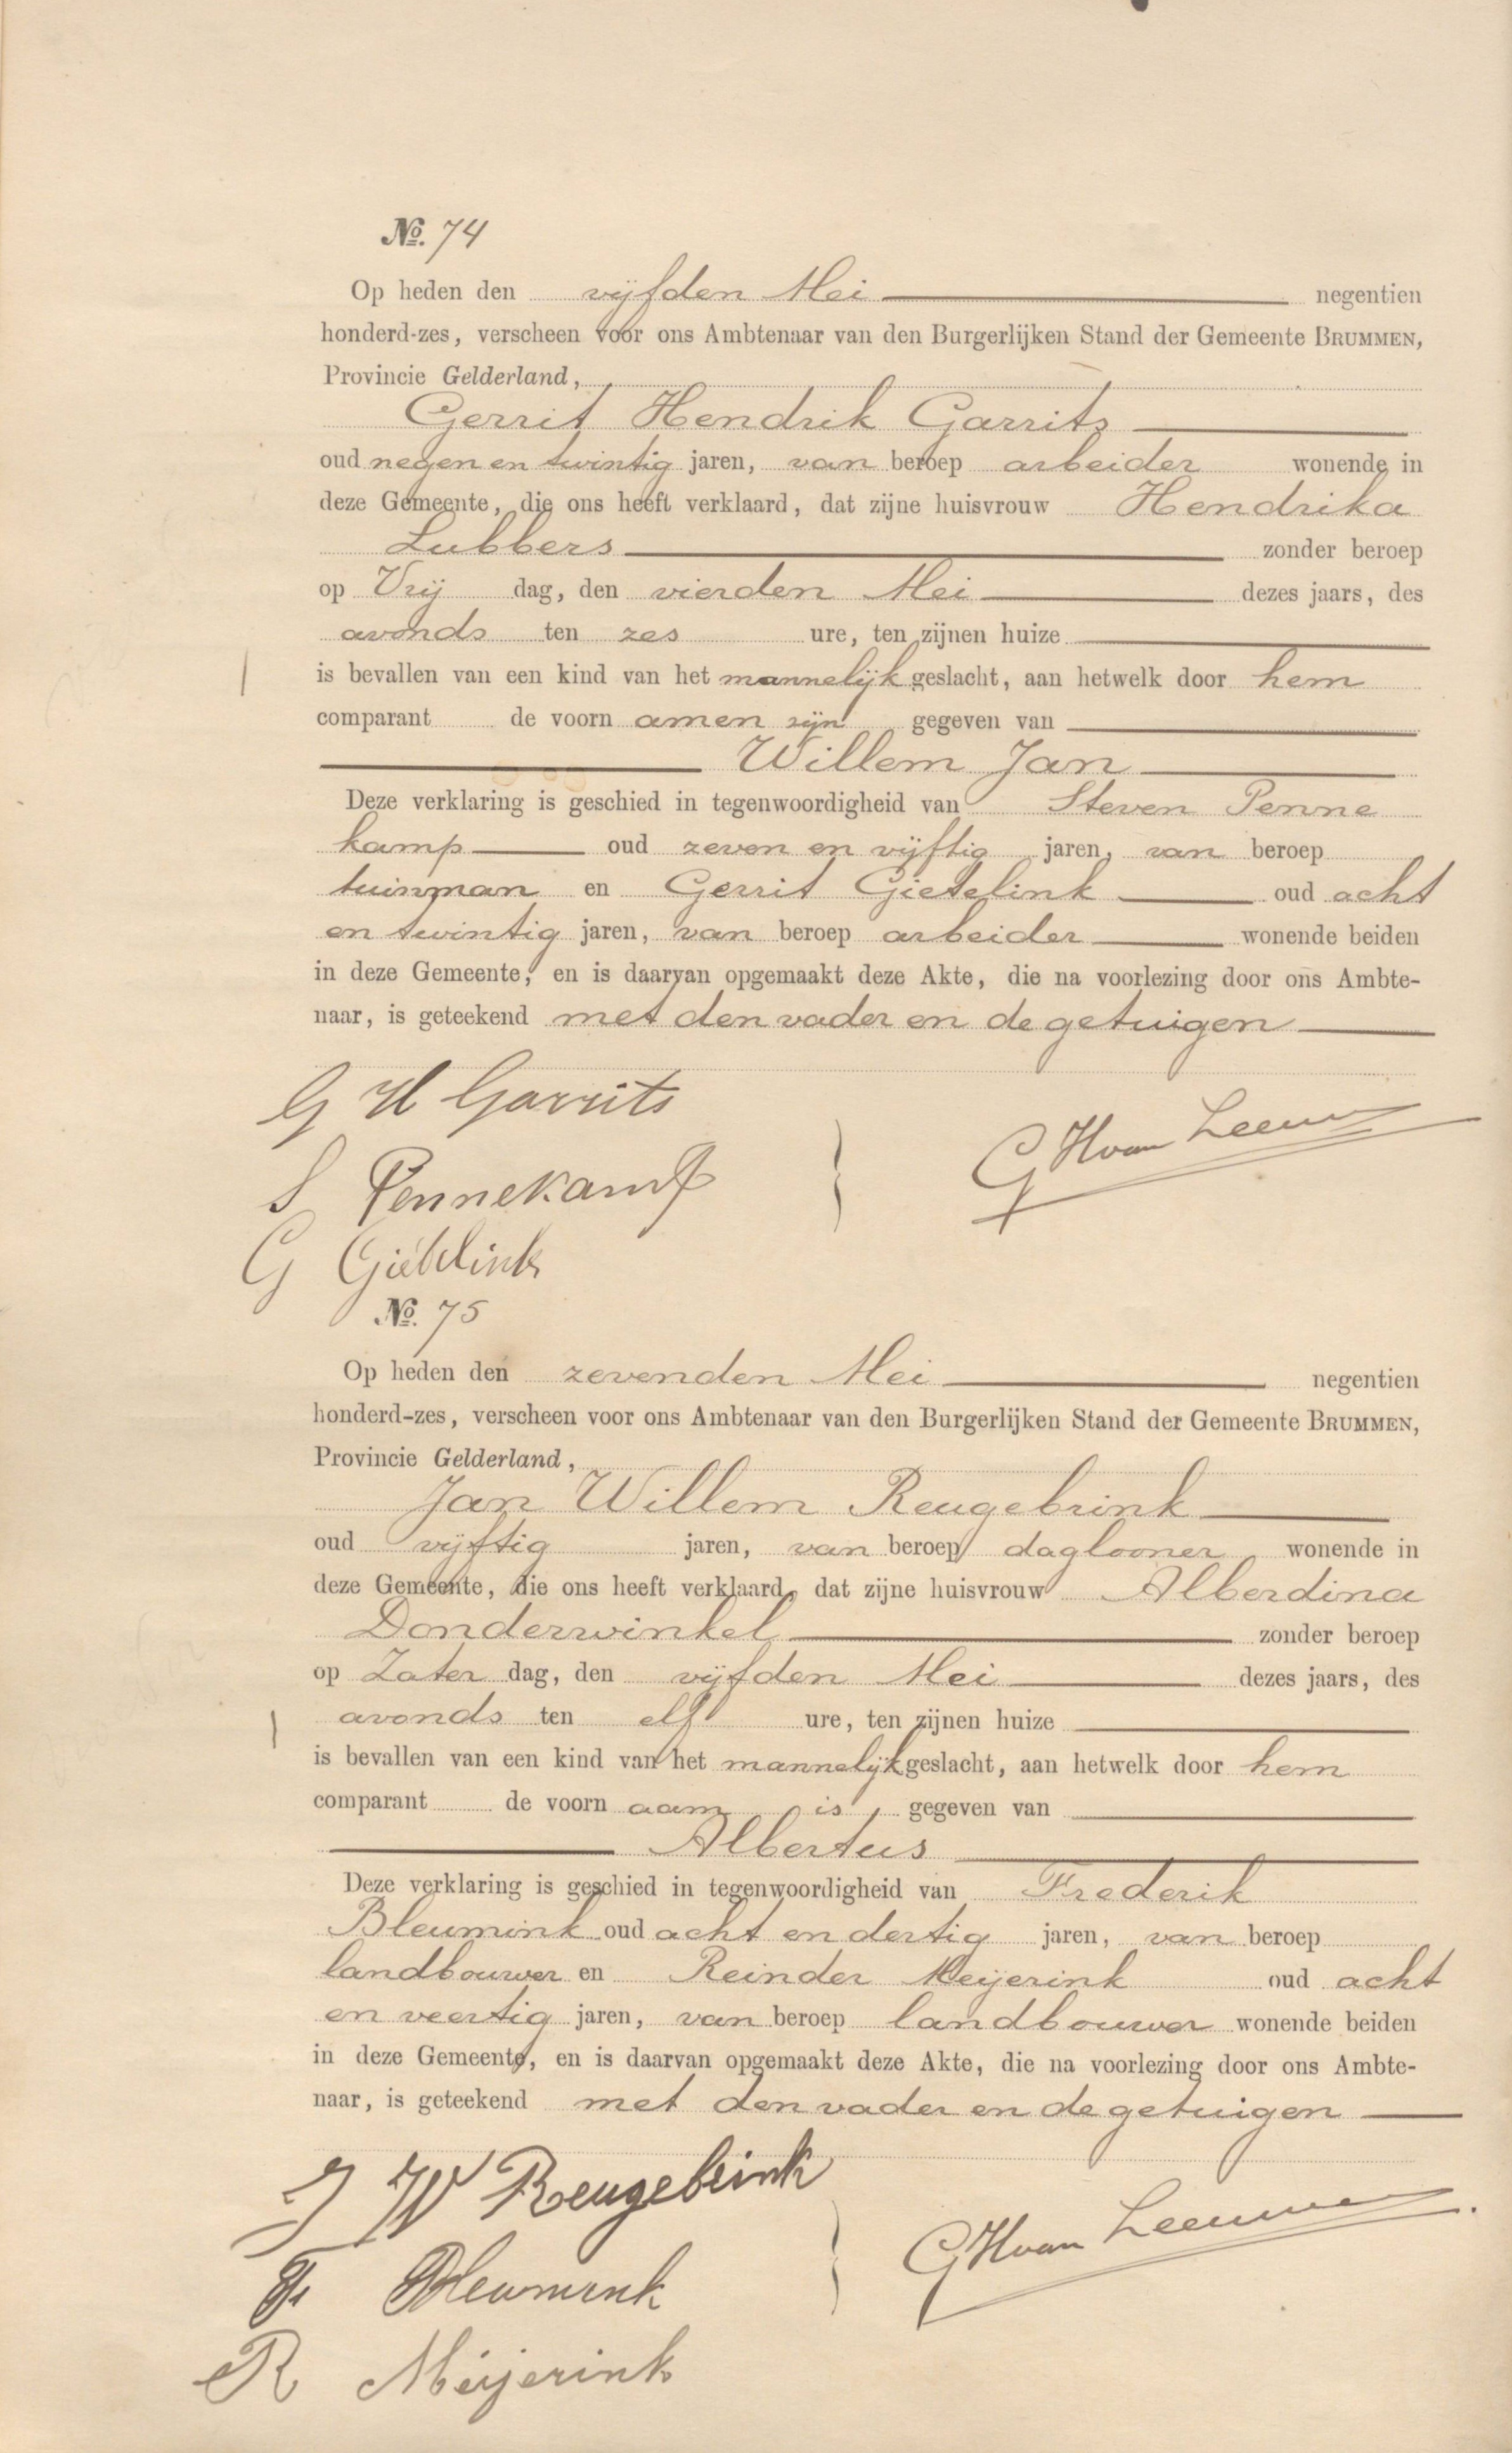 No. 74
Op heden den vijfden Mei negentien
honderd-zes, verscheen voor ons Ambtenaar van den Burgerlijken Stand der Gemeente BRUMMEN,
Provincie Gelderland,
Gerrit Hendrik Garrits
oud negen en twintig jaren, van beroep arbeider wonende in
deze Gemeente, die ons heeft verklaard, dat zijne huisvrouw Hendrika
Lubbers zonder beroep
op Vrij dag, den vierden Mei dezes jaars, des
avonds ten zes ure, ten zijnen huize
is bevallen van een kind van het mannelijk geslacht, aan hetwelk door hem
comparant de voorn amen zijn gegeven van
Willem Jan
Deze verklaring is geschied in tegenwoordigheid van Steven Penne
kamp oud zeven en vijftig jaren, van beroep
tuinman en Gerrit Gietelink oud acht
en twintig jaren, van beroep arbeider wonende beiden
in deze Gemeente, en is daarvan opgemaakt deze Akte, die na voorlezing door ons Ambte-
naar, is geteekend met den vader en de getuigen
G H Garrits
G H van Leeuwen
S Pennekamp
G Gietelink
No. 75
Op heden den zevenden Mei negentien
honderd-zes, verscheen voor ons Ambtenaar van den Burgerlijken Stand der Gemeente BRUMMEN,
Provincie Gelderland,
Jan Willem Reugebrink
oud vijftig jaren, van beroep daglooner wonende in
deze Gemeente, die ons heeft verklaard, dat zijne huisvrouw Alberdina
Donderwinkel zonder beroep
op Zater dag, den vijfden Mei dezes jaars, des
avonds ten elf ure, ten zijnen huize
is bevallen van een kind van het mannelijk geslacht, aan hetwelk door hem
comparant de voorn aam is gegeven van
Albertus
Deze verklaring is geschied in tegenwoordigheid van Frederik
Bleumink oud acht en dertig jaren, van beroep
landbouwer en Reinder Meijerink oud acht
en veertig jaren, van beroep landbouwer wonende beiden
in deze Gemeente, en is daarvan opgemaakt deze Akte, die na voorlezing door ons Ambte-
naar, is geteekend met den vader en de getuigen
J W Reugebrink
G H van Leeuwen
F. Bleumink
R Meijerink